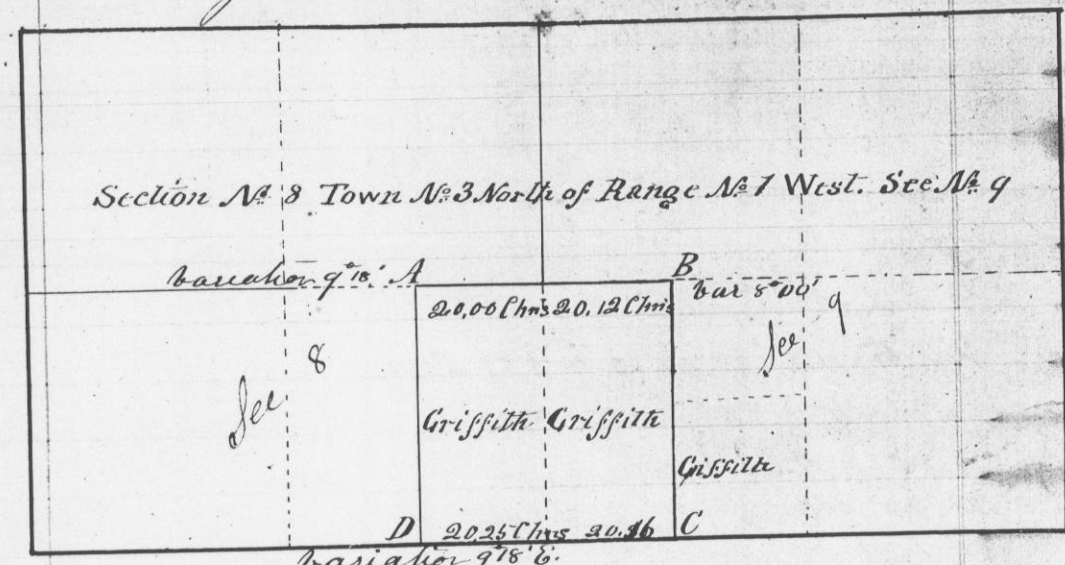 Section No 8 Town No 3 North of Range No 1 West. Sec No 9
variation 9°18' A
B
20,00 Chns 20.12 Chns
var 8°00'
Sec 8
Sec 9
Griffith Griffith
Giffith
D 20,25 Chns 20.16 C
variation 9°18' E.